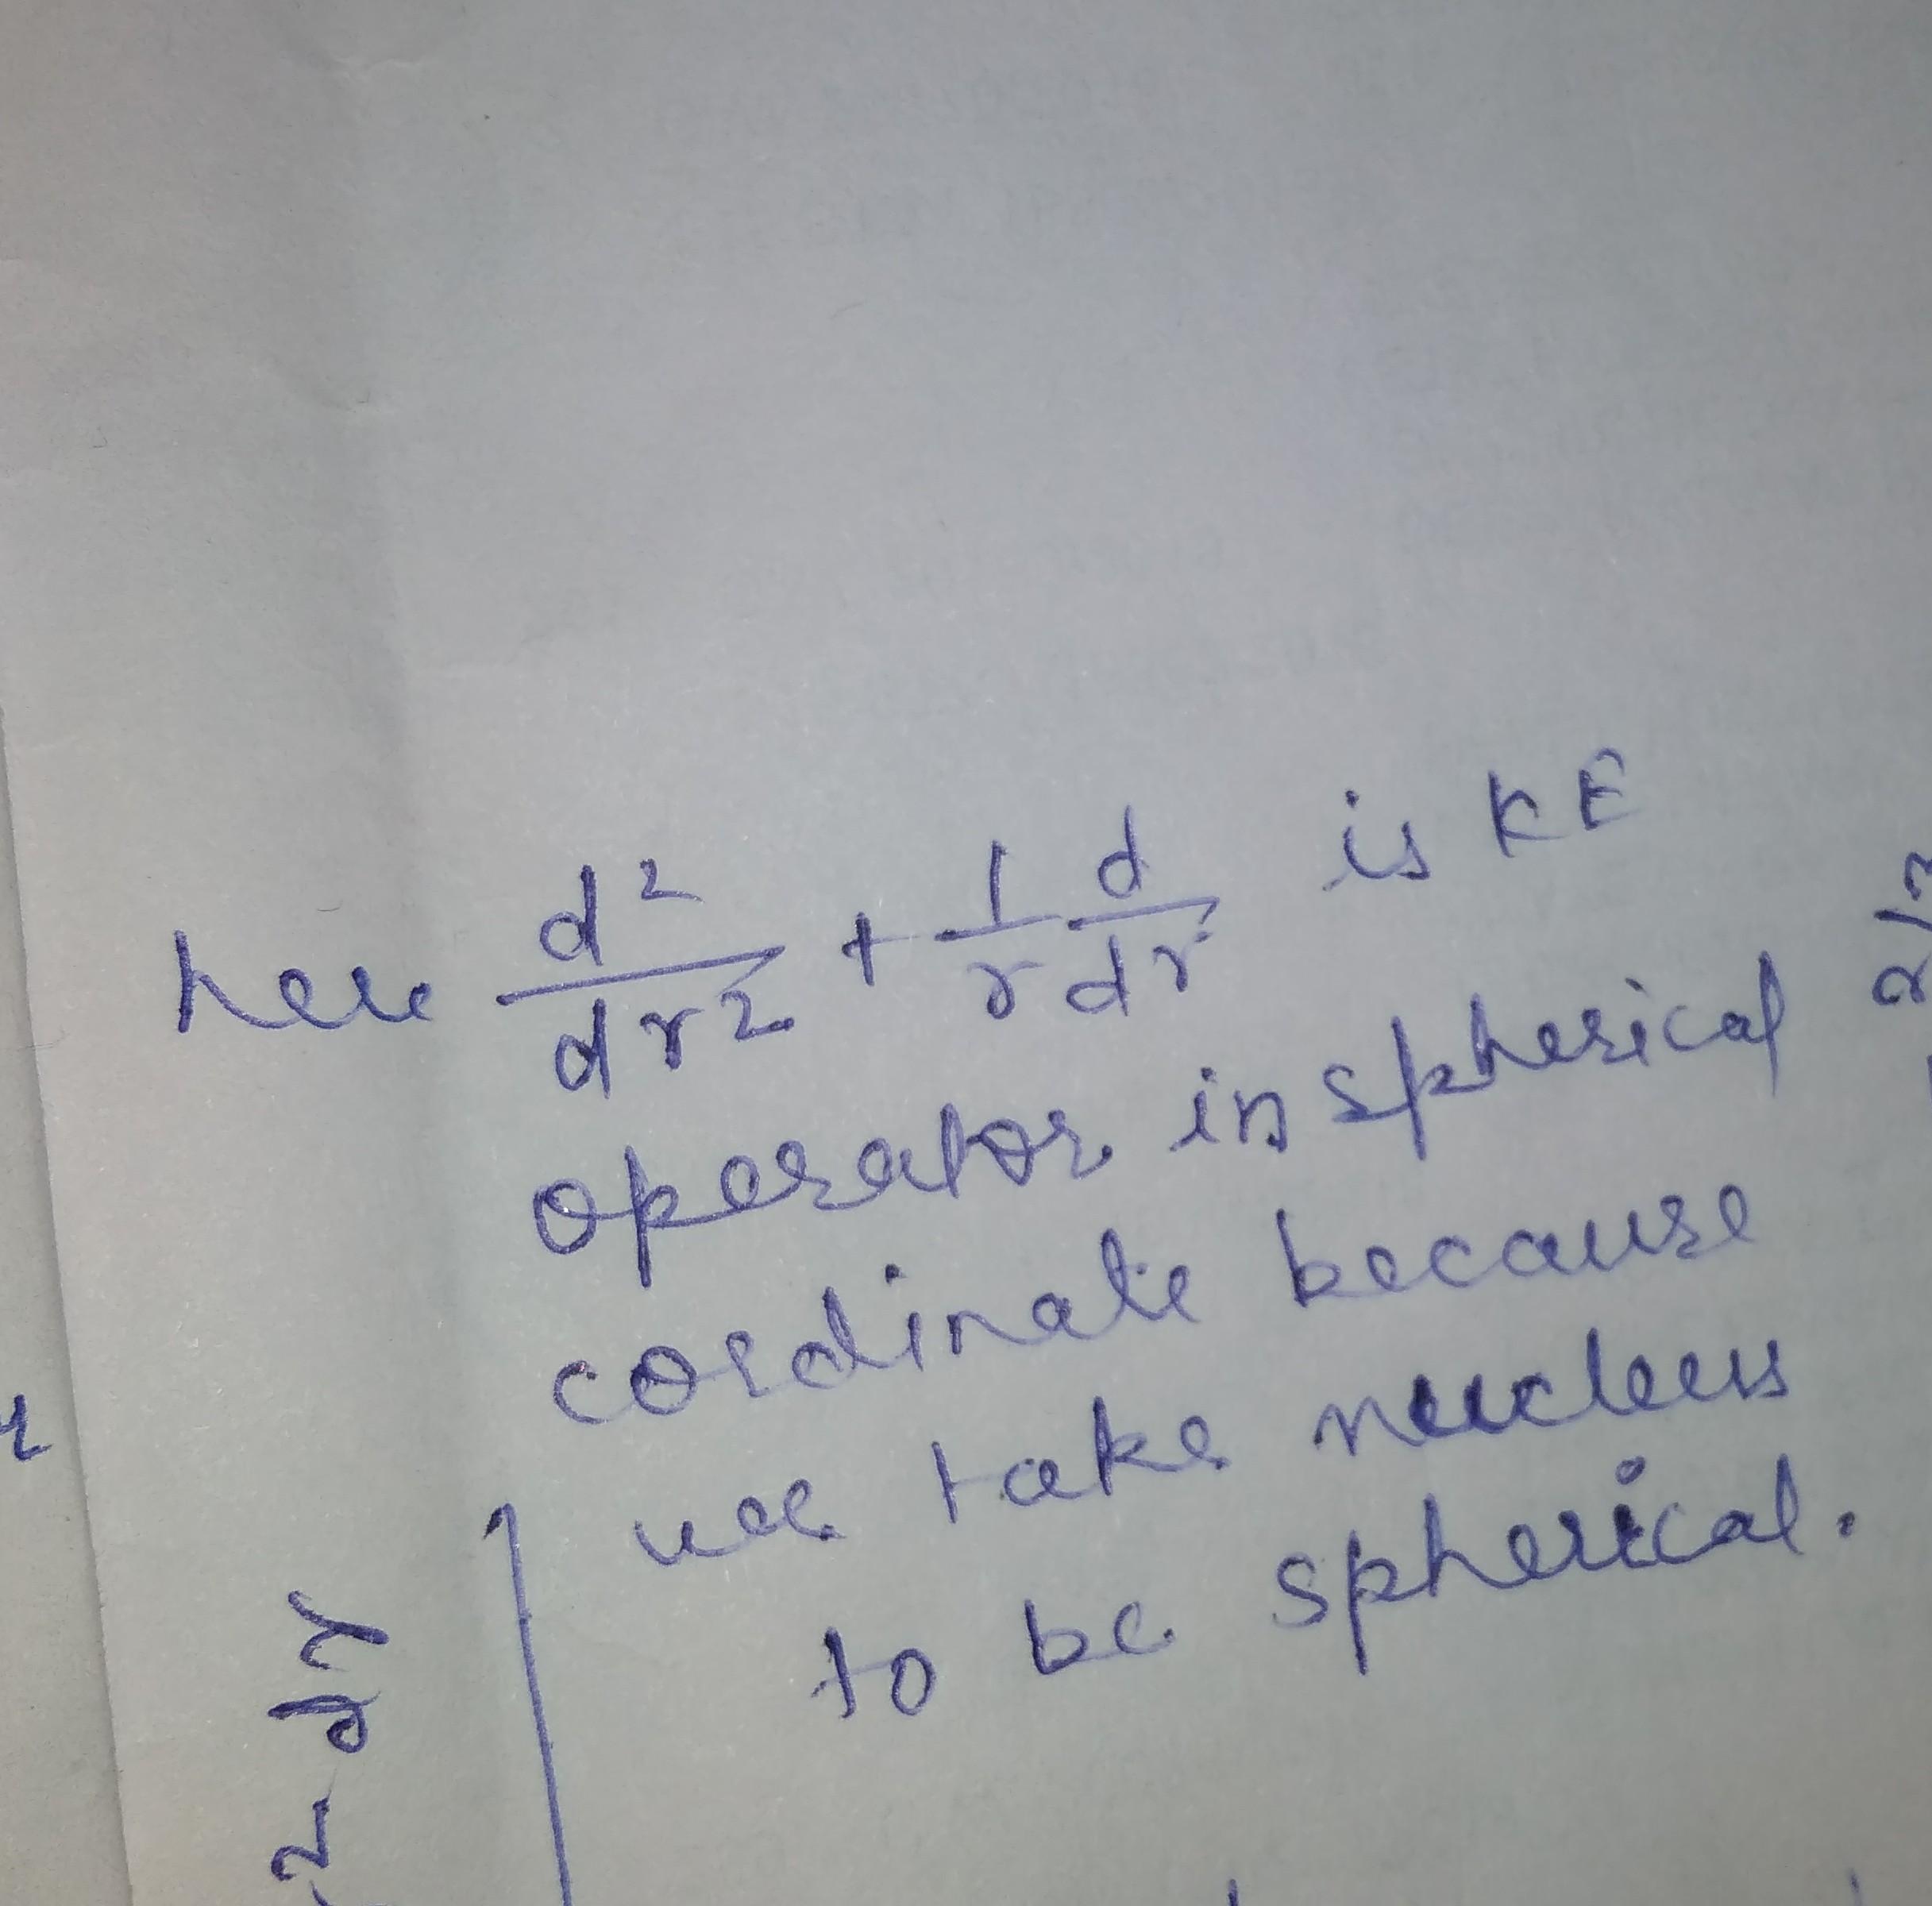 here d²/dr² + 1/r d/dr is KE
operator in spherical
cordinate because
we take nucleus
to be spherical.